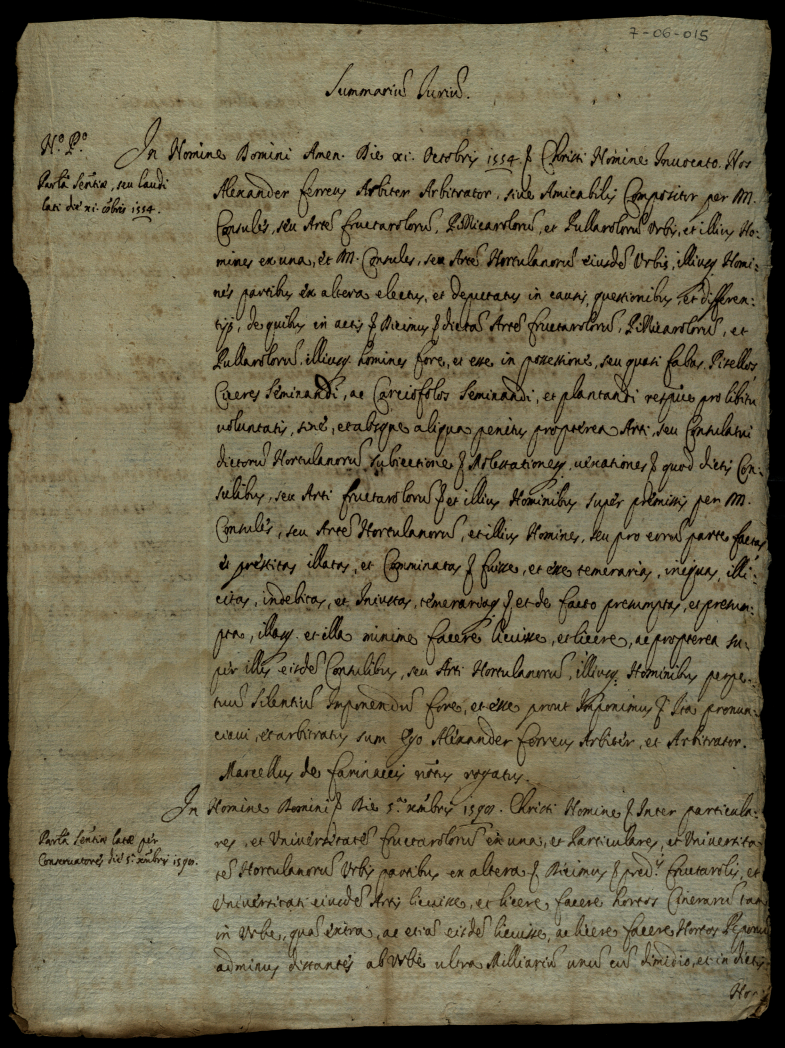 7-06-015
Summariũ Juriũ.
N.º P.º
Parla Sentiæ, seu laudi
lati die xi. 8bris 1554.
In Nomine Domini Amen. Die xi. Octobris 1554. Christi Nomine Invocato. Nos
Alexander Ferreus Arbiter Arbitrator, sive Amicabilis Compositor per M.
Consules, seu Artẽ fructarolorũ, Pizzicarolorũ, et Pullarolorũ Urbis, et illius Ho-
mines ex una, et M. Consules, seu Artẽ Hortulanorũ eiusdẽ Urbis, illiusq Homi-
nes partibus ex altera electus, et deputatus in causis, questionibus, et differen-
tijs, de quibus in actis Dicimus dictas Artẽ fructarolorũ, Pizzicarolorũ, et
Pullarolorũ, illiusq homines fore, et esse in possessione, seu quasi fabas, Pisellos
Ciceres Seminandi, ac Carciofolos Seminandi, et plantandi respive pro libitu
voluntatis, sine, et absque aliqua penitus propterea Arti, seu Consulatui
dictorũ Hortulanorũ subiectione Molestationesq, vexationes quod dictis Con-
sulibus, seu Arti fructarolorũ et illius Hominibus super premissis per M.
Consules, seu Artẽ Hortulanorũ, et illius Homines, seu pro eorũ parte factas
et prestitas illatas, et Comminatas fuisse, et esse temerarias, iniquas, illi-
citas, indebitas, et Iniustas, temerariasq et de facto presumptas, et presum-
pta, illasq et illa minime facere licuisse, et licere, ac propterea su-
per illis eisdẽ Consulibus, seu Arti Hortulanorũ, illiusq Hominibus perpe-
tuũ Silentiũ Imponendũ fore, et esse prout Imponimus Ita pronun-
ciavi, et arbitratus sum Ego Alexander Ferreus Arbiter, et Arbitrator.
Marcellus de farinaccis notus rogatus.
Parla Sentiæ latæ per
Conservatores die 5.ª xmbris 1590.
In Nomine Domini Die 5.ª xmbris 1590. Christi Nomine Inter particula-
res, et Universitatẽ fructarolorũ ex una, et Particulares, et Universita-
tẽ Hortulanorũ Urbis partibus ex altera Dicimus pred.is fructarolis, et
Universitati eiusdẽ Artis licuisse, et licere facere hortos Cinerarũ tam
in Urbe, quã extra, ac etiã eisdẽ licuisse, ac licere facere Hortos
ad minus distantes ab Urbe ultra Milliariũ unũ cũ dimidio, et in dictis
Hor-